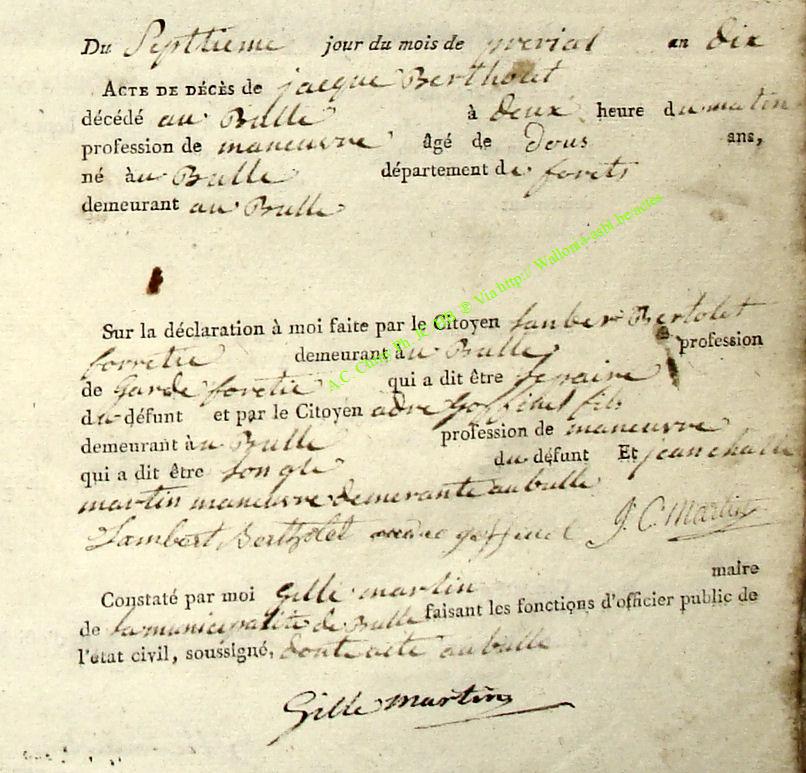 Du Septtieme jour du mois de prerial an dix
ACTE DE DÉCÈS de jacque Berthout
décédé au Bulle à deux heure du matin
profession de maneuvre âgé de dous ans,
né àu Bulle département de forets
demeurant au Bulle
A.C. Chiny Ph. R. © Via http:// Wallonia-asbl.be/actes
Sur la déclaration à moi faite par le Citoyen Lanber Bertolet
forretie demeurant àu Bulle profession
de Garde foretie qui a dit être
du défunt et par le Citoyen adre goffinet fils
demeurant àu Bulle profession de maneuvre
qui a dit être songle du défunt Et jean challe
martin maneuvre demerante au bulle
Lambert Bertholet andre goffinet J. C. Martin
Constaté par moi Gille martin maire
de la municipalité de Bulle faisant les fonctions d'officier public de
l'état civil, soussigné, dont acte au bulle
Gille martin